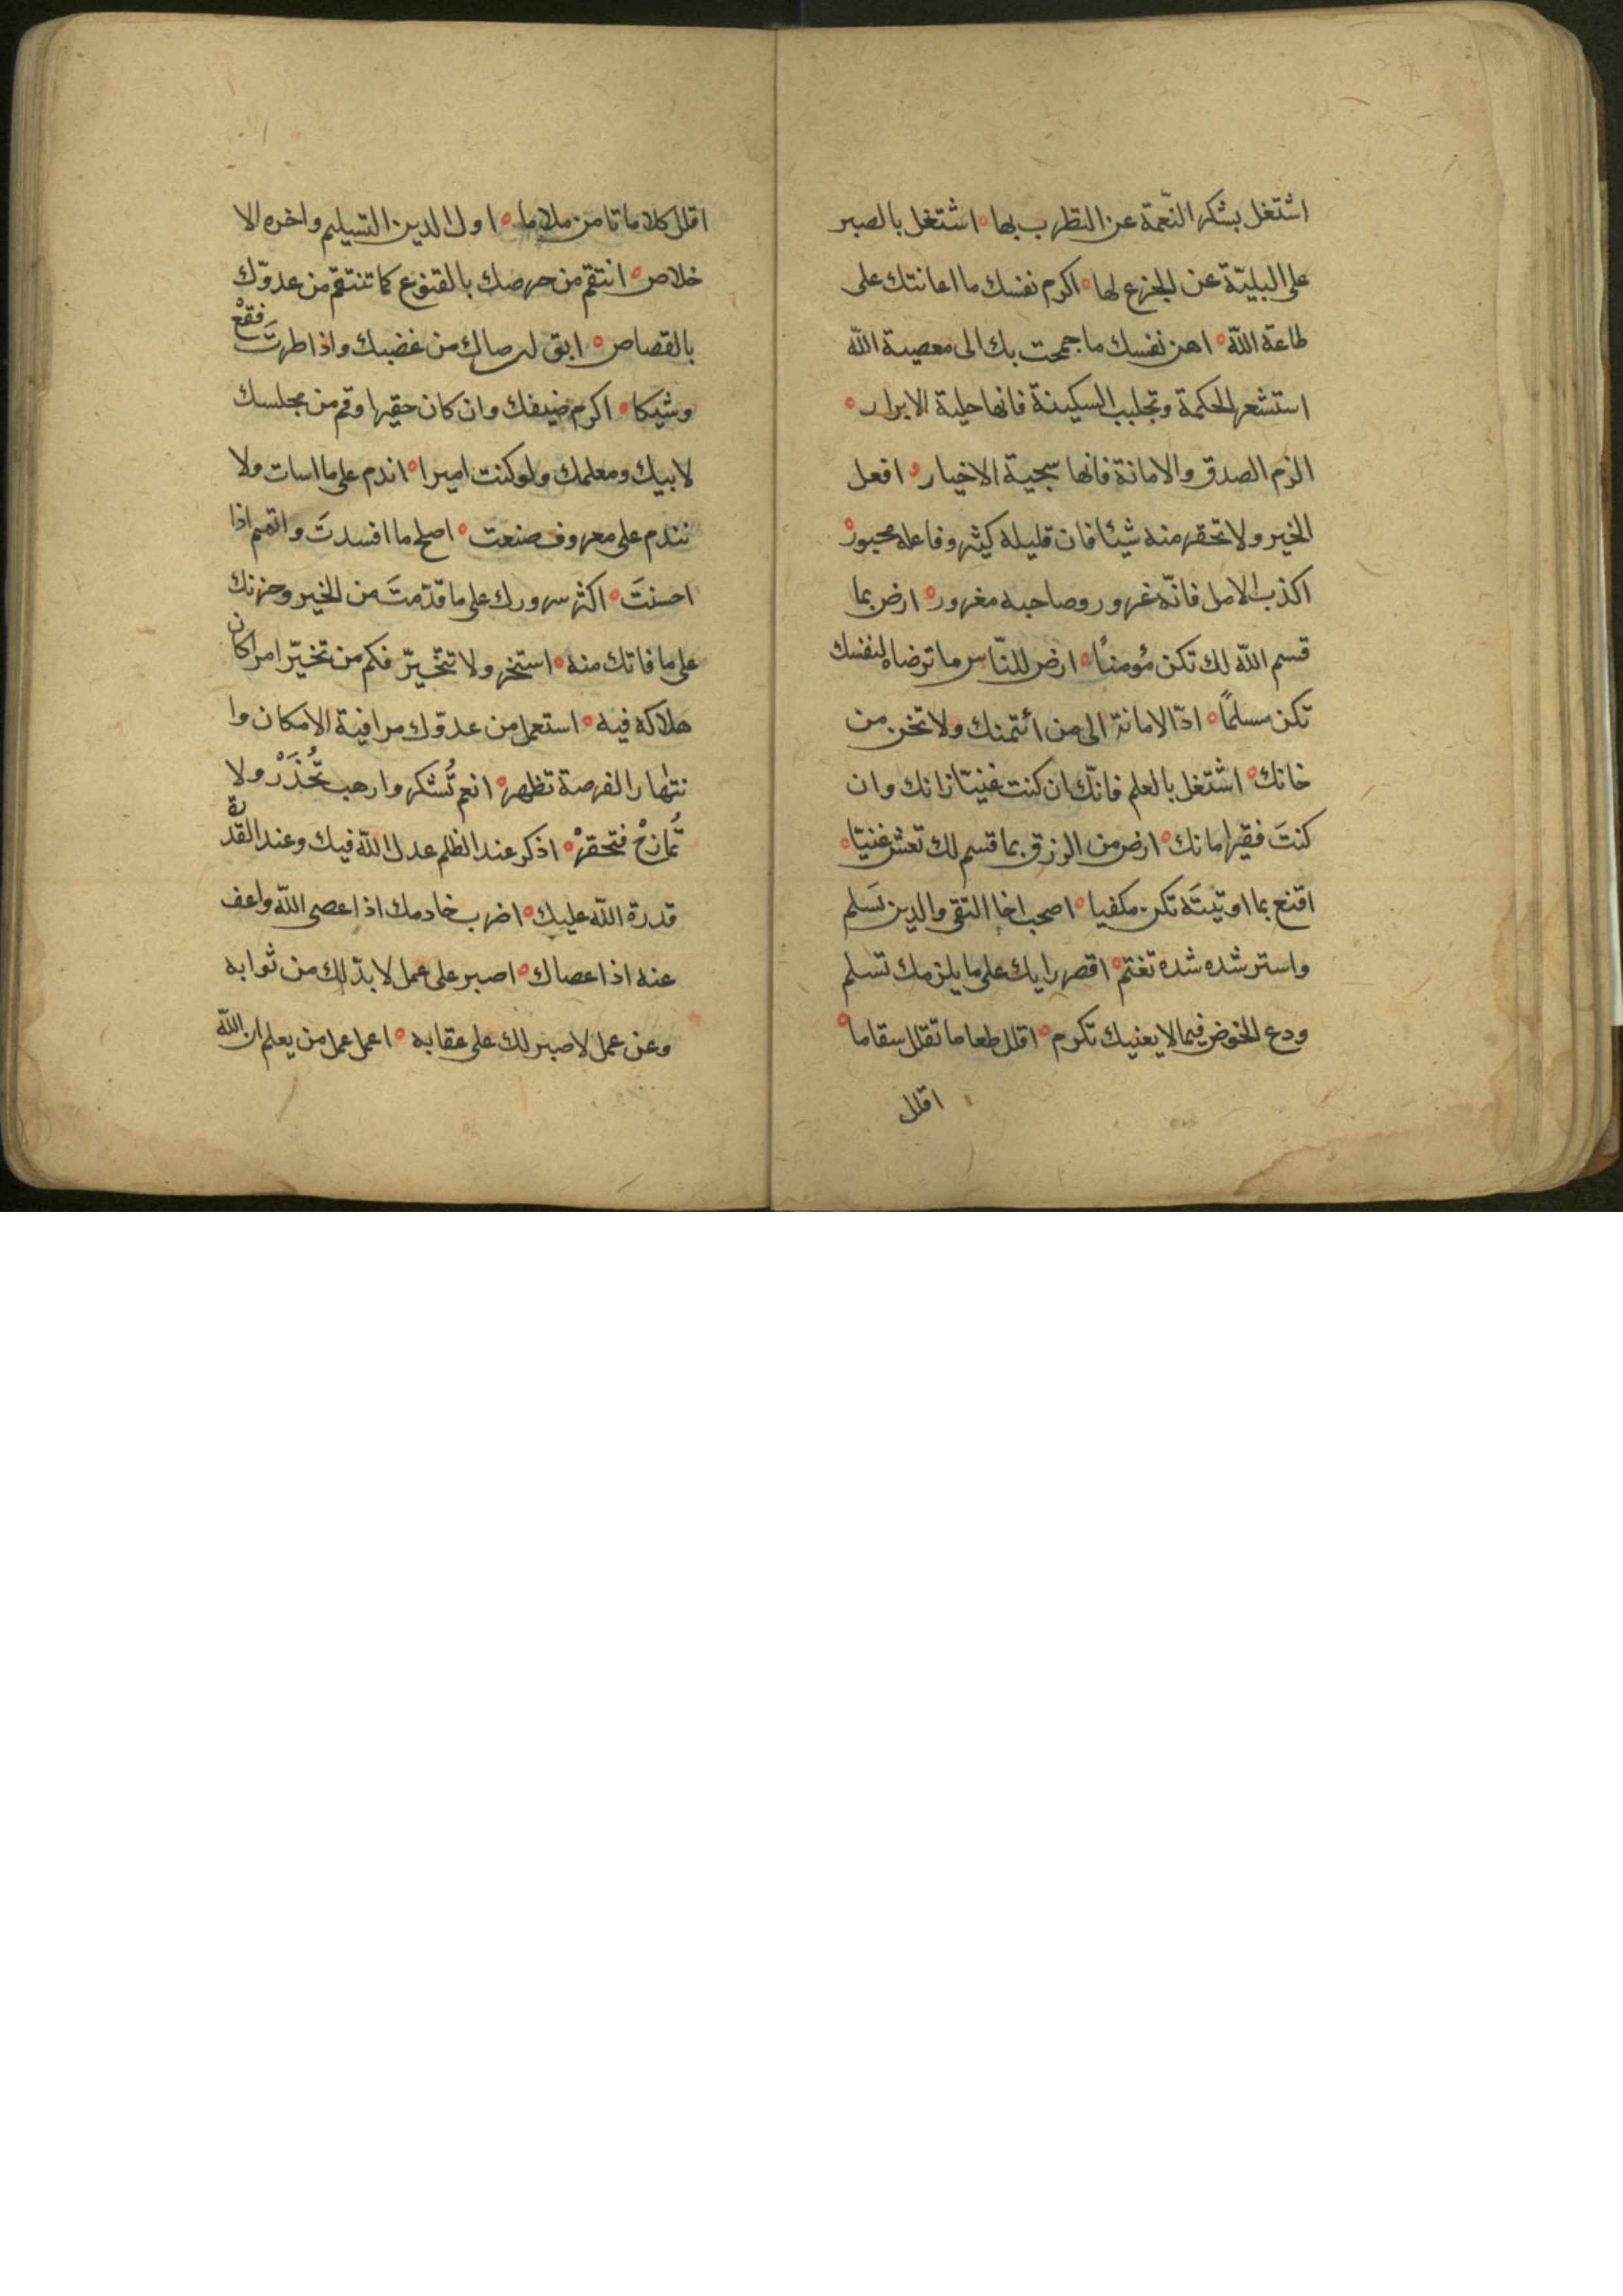 اشتغل بشكر النّعمة عن التطرب بها ه اشتغل بالصبر
على البليّة عن الجزع لها ه اكرم نفسك ما اعانتك على
طاعة اللّه ه اهن نفسك ما جمحت بك الى معصية اللّه
استشعر الحكمة وتجلبب السكينة فانها حلية الابرار ه
الزم الصدق والامانة فانها سجية الاخيار ه افعل
الخير ولا تحقر منه شيئا فان قليله كثير وفاعله محبور ه
اكذب الامل فانّه غرور وصاحبه مغرور ه ارض بما
قسم اللّه لك تكن مؤمنًا ه ارض للنّاس ما ترضاه لنفسك
تكن مسلمًا ه ادّ الامانة الى من أئتمنك ولا تخن من
خانك ه اشتغل بالعلم فانّك ان كنت غنيّا زانك وان
كنتَ فقيرا مانك ه ارض من الرزق بما قسم لك تعش غنيّا ه
اقنع بما اوتيتَه تكن مكفيا ه اصحب اخا التقى والدين تَسلم
واسترشده شده تغتم ه اقصر رايك على ما يلزمك تسلم
ودع الخوض فيما لا يعنيك تكرم ه اقلل طعاما تقلل سقاما ه
اقلل
اقلل كلاما تامن ملاما ه اول الدين التسليم واخره الا
خلاص ه انتقم من حرصك بالقنوع كما تنتقم من عدوّك
بالقصاص ه ابق لرضاك من غضبك واذا طرتَ فقعْ
وشيكا ه اكرم ضيفك وان كان حقيرا وقم من مجلسك
لابيك ومعلمك ولو كنت اميرا ه اندم على ما اسات ولا
تندم على معروف صنعت ه اصلح ما افسدتَ واتمم اذا
احسنتَ ه اكثر سرورك على ما قدّمتَ من الخير وحزنك
على ما فاتك منه ه استخر ولا تتخيّر فكم من تخيّر امرا كان
هلاكه فيه ه استعمل من عدوّك مراقبة الامكان وا
نتهار الفرصة تظهر ه انعم تُشكر وارهب تُحْذَرْ ولا
تُمازحْ فتحقرْ ه اذكر عند الظلم عدل اللّه فيك وعند القدْرة
قدرة اللّه عليك ه اضرب خادمك اذا عصى اللّه واعف
عنه اذا عصاك ه اصبر على عمل لا بدّ لك من ثوابه
وعن عمل لا صبر لك على عقابه ه اعمل عمل من يعلم ان اللّه